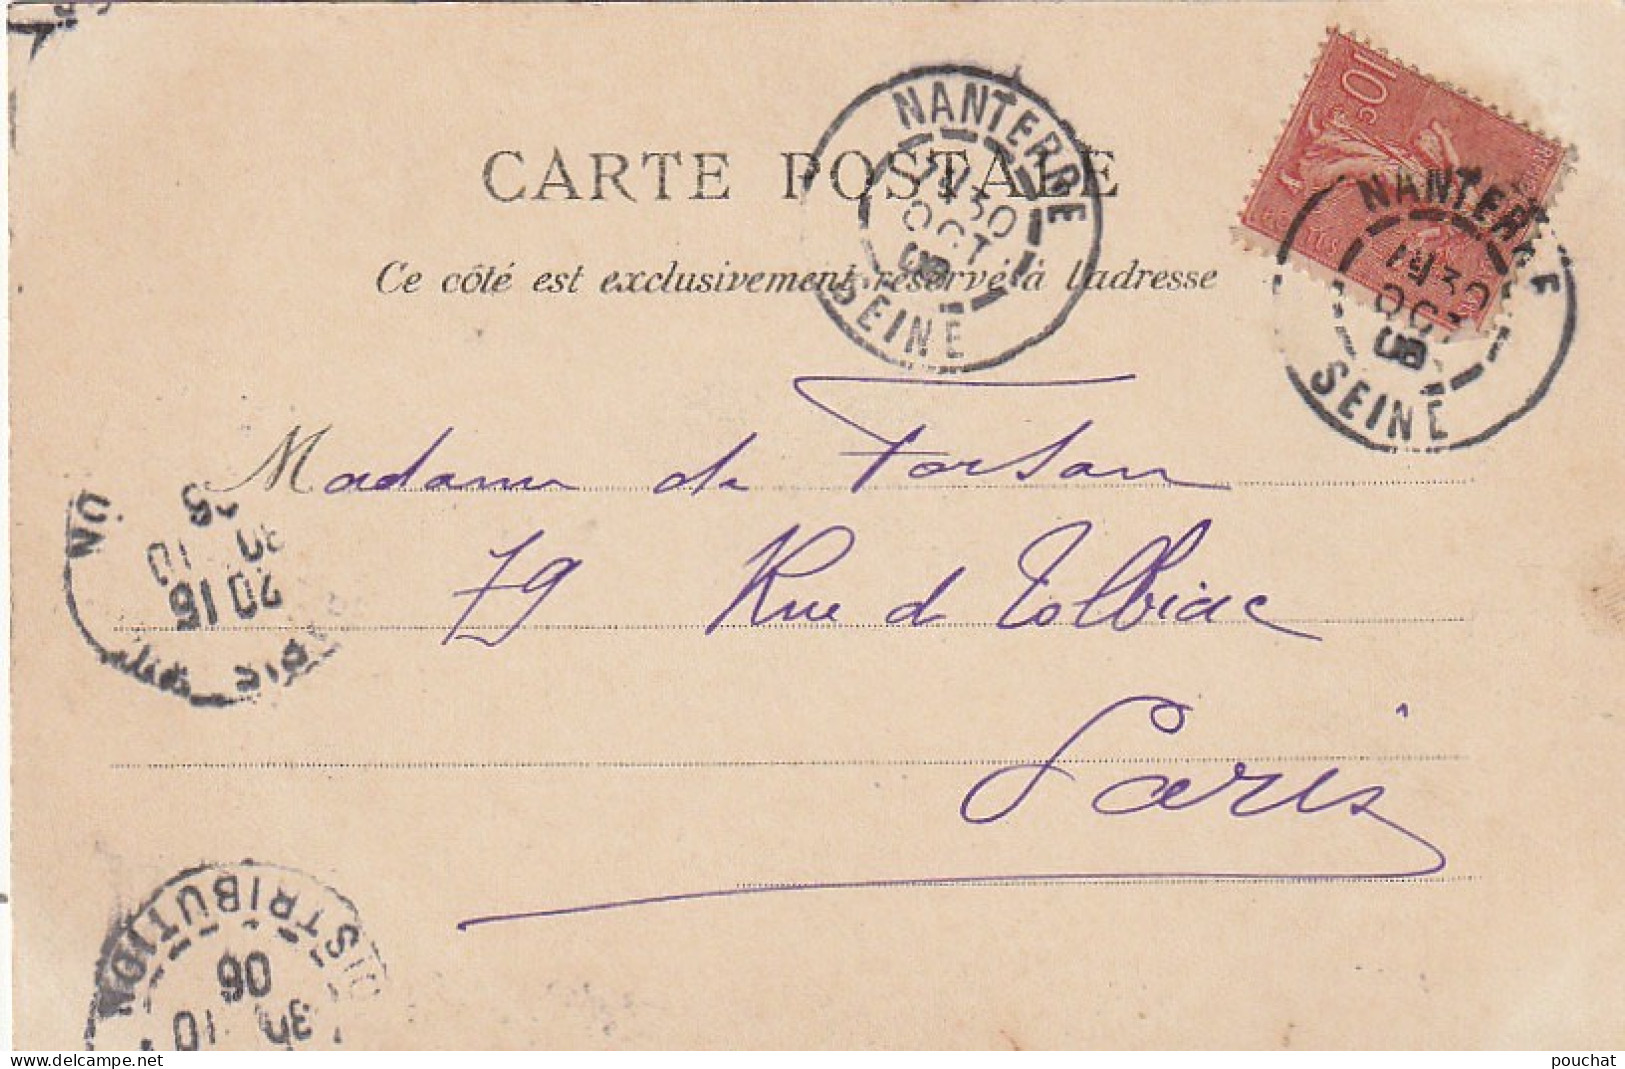 CARTE POSTALE
Ce côté est exclusivement réservé à l'adresse
NANTERRE
30
OCT
06
SEINE
10c
NANTERRE
30
OCT
06
SEINE
Madame de Forsan
79 Rue de Tolbiac
Paris
20 15
30 10
DISTRIBUTION
06
30 10
www.delcampe.net
pouchat